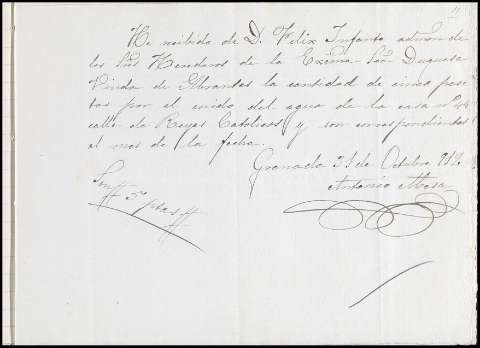 He recibido de D. Felix Infante admor. de
los Sres Herederos de la Excma. Sra Duquesa
Viuda de Abrantes la cantidad de cinco pese
tas por el cuido del agua de la casa nº 44
calle de Reyes Catolicos y son correspondientes
al mes de la fecha.
Granada 31 de Octubre 912
Antonio Mesa
Son
# 5 ptas #